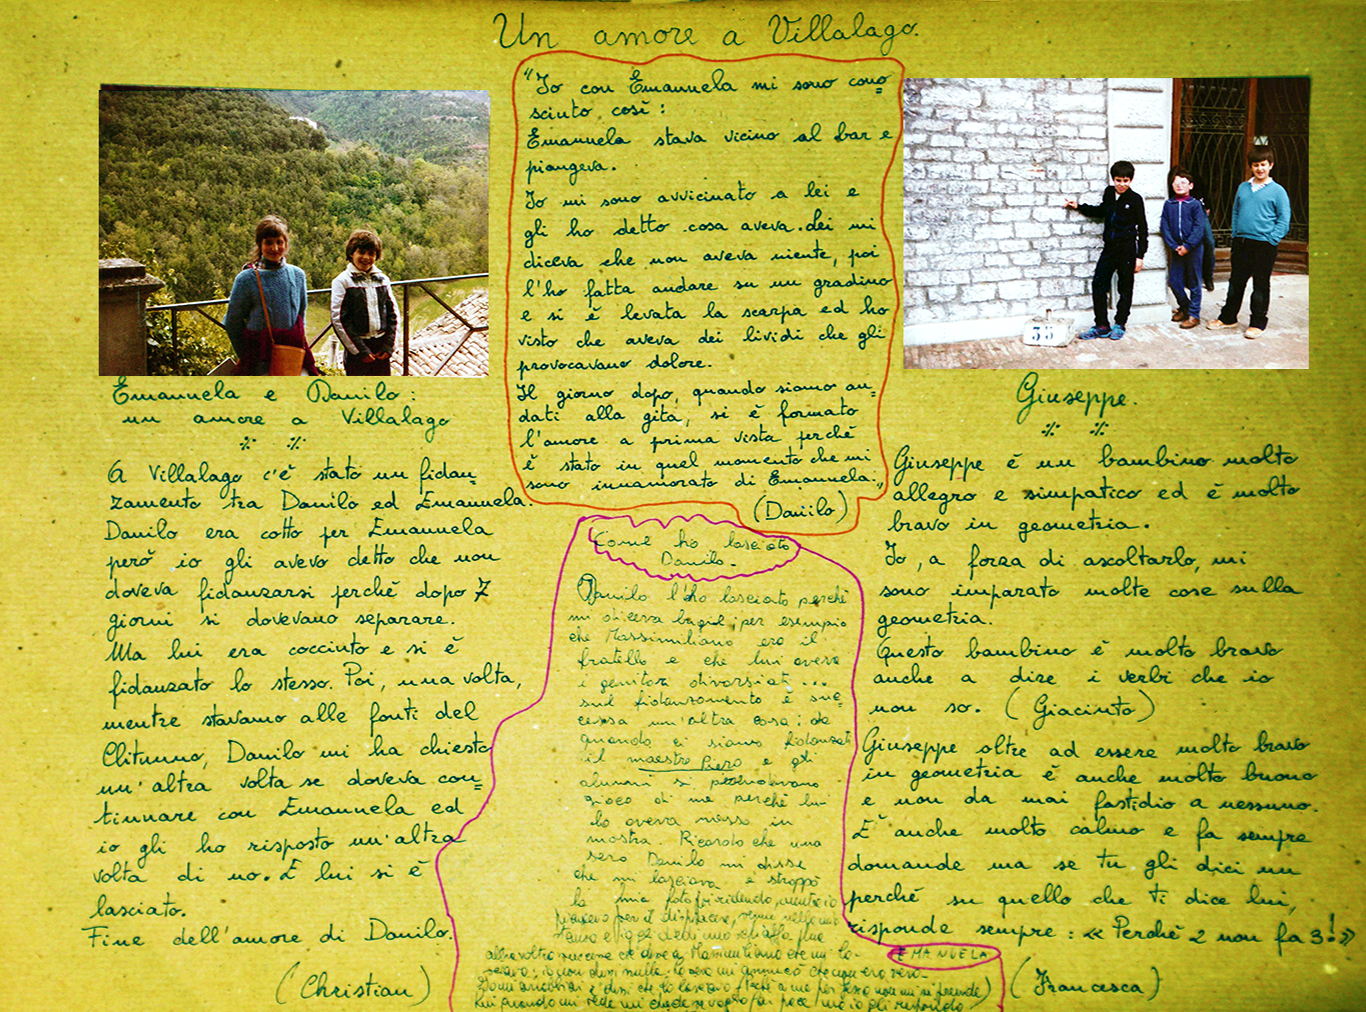 Un amore a Villalago.
"Io con Emanuela mi sono cono=
sciuto così :
Emanuela stava vicino al bar e
piangeva.
Io mi sono avvicinato a lei e
gli ho detto cosa aveva. Lei mi
diceva che non aveva niente, poi
l'ho fatta andare su un gradino
e si è levata la scarpa ed ho
visto che aveva dei lividi che gli
provocavano dolore.
Il giorno dopo, quando siamo an=
dati alla gita, si è formato
l'amore a prima vista perchè
è stato in quel momento che mi
sono innamorato di Emanuela."
(Danilo)
Emanuela e Danilo :
un amore a Villalago
A Villalago c'è stato un fidan=
zamento tra Danilo ed Emanuela.
Danilo era cotto per Emanuela
però io gli avevo detto che non
doveva fidanzarsi perchè dopo 7
giorni si dovevano separare.
Ma lui era cocciuto e si è
fidanzato lo stesso. Poi, una volta,
mentre stavamo alle fonti del
Clitunno, Danilo mi ha chiesto
un'altra volta se doveva con=
tinuare con Emanuela ed
io gli ho risposto un'altra
volta di no. E lui si è
lasciato.
Fine dell'amore di Danilo.
(Christian)
Come ho lasciato
Danilo.
Danilo l'ho lasciato perchè
mi diceva bugie, per esempio
che Massimiliano era il
fratello e che lui aveva
i genitori divorsiati ...
sul fidanzamento è suc=
cessa un'altra cosa : da
quando ci siamo fidanzati
il maestro Piero e gli
alunni si prendevano
gioco di me perchè lui
lo aveva messo in
mostra. Ricordo che una
sera Danilo mi disse
che mi lasciava e strappò
la mia foto ridendo, mentre io
piangevo per il dispiacere, venne nella mia
EMANUELA
35
Giuseppe.
Giuseppe è un bambino molto
allegro e simpatico ed è molto
bravo in geometria.
Io, a forza di ascoltarlo, mi
sono imparato molte cose sulla
geometria.
Questo bambino è molto bravo
anche a dire i verbi che io
non so. (Giacinto)
Giuseppe oltre ad essere molto bravo
in geometria è anche molto buono
e non da mai fastidio a nessuno.
E' anche molto calmo e fa sempre
domande ma se tu gli dici un
perchè su quello che ti dice lui,
risponde sempre : « Perchè 2 non fa 3! »
(Francesca)